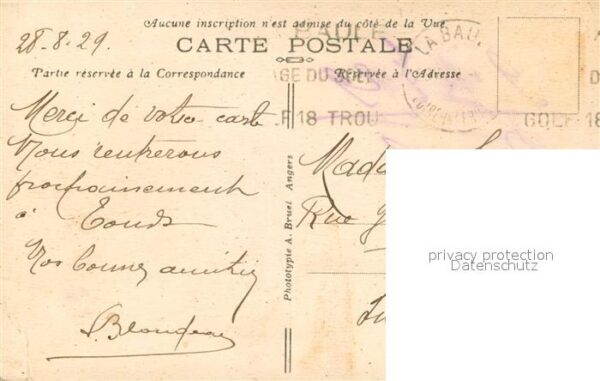 Aucune inscription n'est admise du côté de la Vue
28-8-29.
CARTE POSTALE
Partie réservée à la Correspondance
Réservée à l'Adresse
BAULE
LA BAU
GE DU SOLEIL
F 18 TROU
GOLF 18
Merci de votre carte
Nous rentrerons
prochainement
à
Nos bonnes amitiés
Blondeau
Phototypie A. Bruel Angers
Mada
Rue
privacy protection
Datenschutz